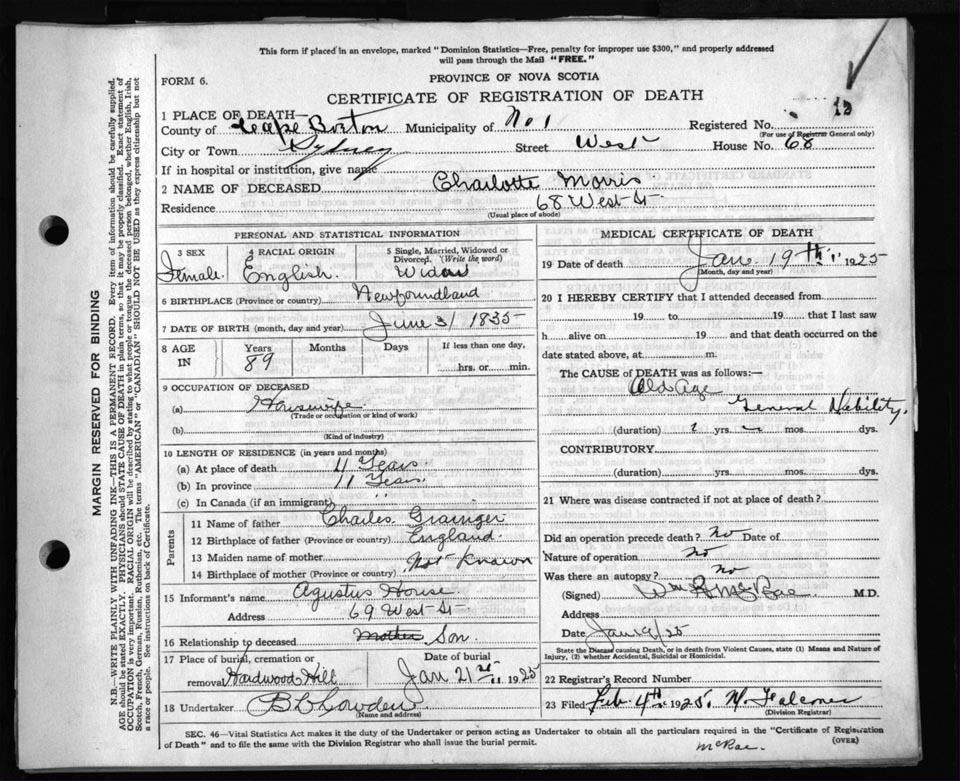 This form if placed in an envelope, marked "Dominion Statistics—Free, penalty for improper use $300," and properly addressed
will pass through the Mail "FREE."
FORM 6.
PROVINCE OF NOVA SCOTIA
CERTIFICATE OF REGISTRATION OF DEATH
1 PLACE OF DEATH—
County of Cape Breton Municipality of No 1 Registered No. 12
(For use of Registrar General only)
City or Town Sydney Street West House No. 68
If in hospital or institution, give name
2 NAME OF DECEASED Charlotte Morris
Residence 68 West St
(Usual place of abode)
PERSONAL AND STATISTICAL INFORMATION
3 SEX 4 RACIAL ORIGIN 5 Single, Married, Widowed or
Divorced. (Write the word)
Female. English. Widow
6 BIRTHPLACE (Province or country) Newfoundland
7 DATE OF BIRTH (month, day and year) June 3/ 1835
8 AGE IN Years Months Days If less than one day,
89 hrs. or min.
9 OCCUPATION OF DECEASED
(a) Housewife
(Trade or occupation or kind of work)
(b)
(Kind of industry)
10 LENGTH OF RESIDENCE (in years and months)
(a) At place of death 11 Years.
(b) In province 11 Years.
(c) In Canada (if an immigrant) " "
Parents
11 Name of father Charles Grainger
12 Birthplace of father (Province or country) England.
13 Maiden name of mother Not Known
14 Birthplace of mother (Province or country)
15 Informant's name Agustus House
Address 69 West St
16 Relationship to deceased Mother Son.
17 Place of burial, cremation or Date of burial
removal Hardwood Hill Jan 21st 1925
18 Undertaker
(Name and address)
MEDICAL CERTIFICATE OF DEATH
19 Date of death Jan. 19th 1925
(Month, day and year)
20 I HEREBY CERTIFY that I attended deceased from
19 to 19 that I last saw
h alive on 19 and that death occurred on the
date stated above, at m.
The CAUSE of DEATH was as follows:—
Old Age
General Debility.
(duration) yrs. mos. dys.
CONTRIBUTORY
(duration) yrs. mos. dys.
21 Where was disease contracted if not at place of death?
Did an operation precede death? No Date of
Nature of operation No
Was there an autopsy? No
(Signed) M.D.
Address
Date Jan 19/25
State the Disease causing Death, or in death from Violent Causes, state (1) Means and Nature of
Injury, (2) whether Accidental, Suicidal or Homicidal.
22 Registrar's Record Number
23 Filed Feb 4th 1925.
(Division Registrar)
SEC. 46—Vital Statistics Act makes it the duty of the Undertaker or person acting as Undertaker to obtain all the particulars required in the "Certificate of Registration
of Death" and to file the same with the Division Registrar who shall issue the burial permit. (OVER)
McRae.
MARGIN RESERVED FOR BINDING
N.B.—WRITE PLAINLY WITH UNFADING INK—THIS IS A PERMANENT RECORD. Every item of information should be carefully supplied.
AGE should be stated EXACTLY. PHYSICIANS should STATE CAUSE OF DEATH in plain terms, so that it may be properly classified. Exact statement of
OCCUPATION is very important. RACIAL ORIGIN will be described by stating to what people or tongue the deceased person belonged, whether English, Irish,
Scotch, French, German, Russian, Ruthenian, etc. The terms "AMERICAN" or "CANADIAN" SHOULD NOT BE USED as they express citizenship but not
a race or people. See instructions on back of Certificate.